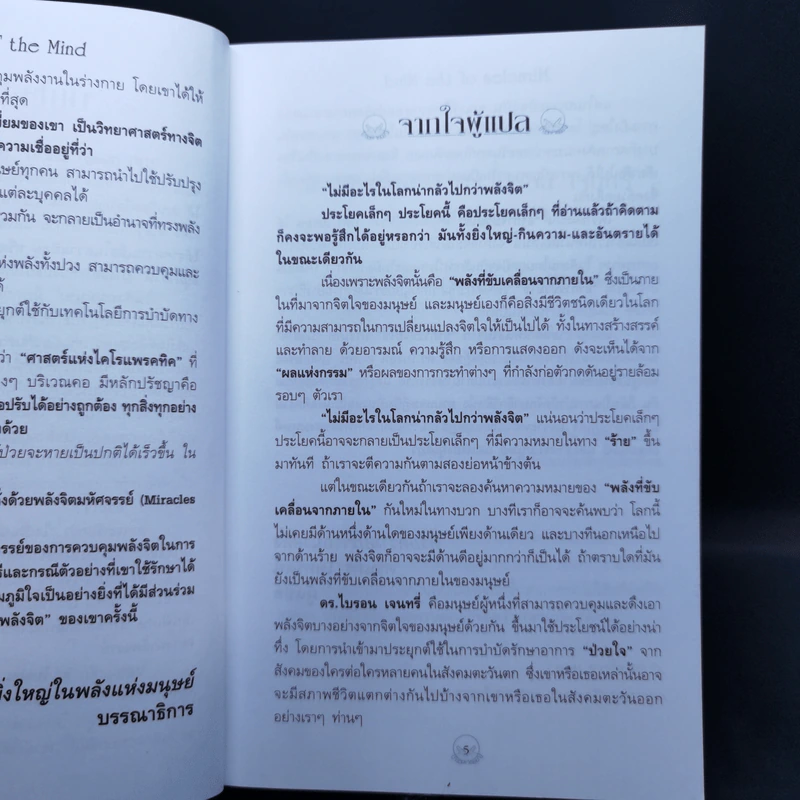 the Mind
คุมพลังงานในร่างกาย โดยเขาได้ให้
ที่สุด
ยมของเขา เป็นวิทยาศาสตร์ทางจิต
ความเชื่ออยู่ที่ว่า
นุษย์ทุกคน สามารถนำไปใช้ปรับปรุง
แต่ละบุคคลได้
วมกัน จะกลายเป็นอำนาจที่ทรงพลัง
ห่งพลังทั้งปวง สามารถควบคุมและ
ด้
ยุกต์ใช้กับเทคโนโลยีการบำบัดทาง
ว่า “ศาสตร์แห่งไคโรแพรคทิค” ที่
างๆ บริเวณคอ มีหลักปรัชญาคือ
อปรับได้อย่างถูกต้อง ทุกสิ่งทุกอย่าง
งด้วย
ป่วยจะหายเป็นปกติได้เร็วขึ้น ใน
ด้วยพลังจิตมหัศจรรย์ (Miracles
รรย์ของการควบคุมพลังจิตในการ
และกรณีตัวอย่างที่เขาใช้รักษาได้
มภูมิใจเป็นอย่างยิ่งที่ได้มีส่วนร่วม
พลังจิต” ของเขาครั้งนี้
ยิ่งใหญ่ในพลังแห่งมนุษย์
บรรณาธิการ
จากใจผู้แปล
“ไม่มีอะไรในโลกน่ากลัวไปกว่าพลังจิต”
ประโยคเล็กๆ ประโยคนี้ คือประโยคเล็กๆ ที่อ่านแล้วถ้าคิดตาม
ก็คงจะพอรู้สึกได้อยู่หรอกว่า มันทั้งยิ่งใหญ่-กินความ-และอันตรายได้
ในขณะเดียวกัน
เนื่องเพราะพลังจิตนั้นคือ “พลังที่ขับเคลื่อนจากภายใน” ซึ่งเป็นภาย
ในที่มาจากจิตใจของมนุษย์ และมนุษย์เองก็คือสิ่งมีชีวิตชนิดเดียวในโลก
ที่มีความสามารถในการเปลี่ยนแปลงจิตใจให้เป็นไปได้ ทั้งในทางสร้างสรรค์
และทำลาย ด้วยอารมณ์ ความรู้สึก หรือการแสดงออก ดังจะเห็นได้จาก
“ผลแห่งกรรม” หรือผลของการกระทำต่างๆ ที่กำลังก่อตัวกดดันอยู่รายล้อม
รอบๆ ตัวเรา
“ไม่มีอะไรในโลกน่ากลัวไปกว่าพลังจิต” แน่นอนว่าประโยคเล็กๆ
ประโยคนี้อาจจะกลายเป็นประโยคเล็กๆ ที่มีความหมายในทาง “ร้าย” ขึ้น
มาทันที ถ้าเราจะตีความกันตามสองย่อหน้าข้างต้น
แต่ในขณะเดียวกันถ้าเราจะลองค้นหาความหมายของ “พลังที่ขับ
เคลื่อนจากภายใน” กันใหม่ในทางบวก บางทีเราก็อาจจะค้นพบว่า โลกนี้
ไม่เคยมีด้านหนึ่งด้านใดของมนุษย์เพียงด้านเดียว และบางทีนอกเหนือไป
จากด้านร้าย พลังจิตก็อาจจะมีด้านดีอยู่มากกว่าก็เป็นได้ ถ้าตราบใดที่มัน
ยังเป็นพลังที่ขับเคลื่อนจากภายในของมนุษย์
ดร.ไบรอน เจนทรี่ คือมนุษย์ผู้หนึ่งที่สามารถควบคุมและดึงเอา
พลังจิตบางอย่างจากจิตใจของมนุษย์ด้วยกัน ขึ้นมาใช้ประโยชน์ได้อย่างน่า
ทึ่ง โดยการนำเข้ามาประยุกต์ใช้ในการบำบัดรักษาอาการ “ป่วยใจ” จาก
สังคมของใครต่อใครหลายคนในสังคมตะวันตก ซึ่งเขาหรือเธอเหล่านั้นอาจ
จะมีสภาพชีวิตแตกต่างกันไปบ้างจากเขาหรือเธอในสังคมตะวันออก
อย่างเราๆ ท่านๆ
5